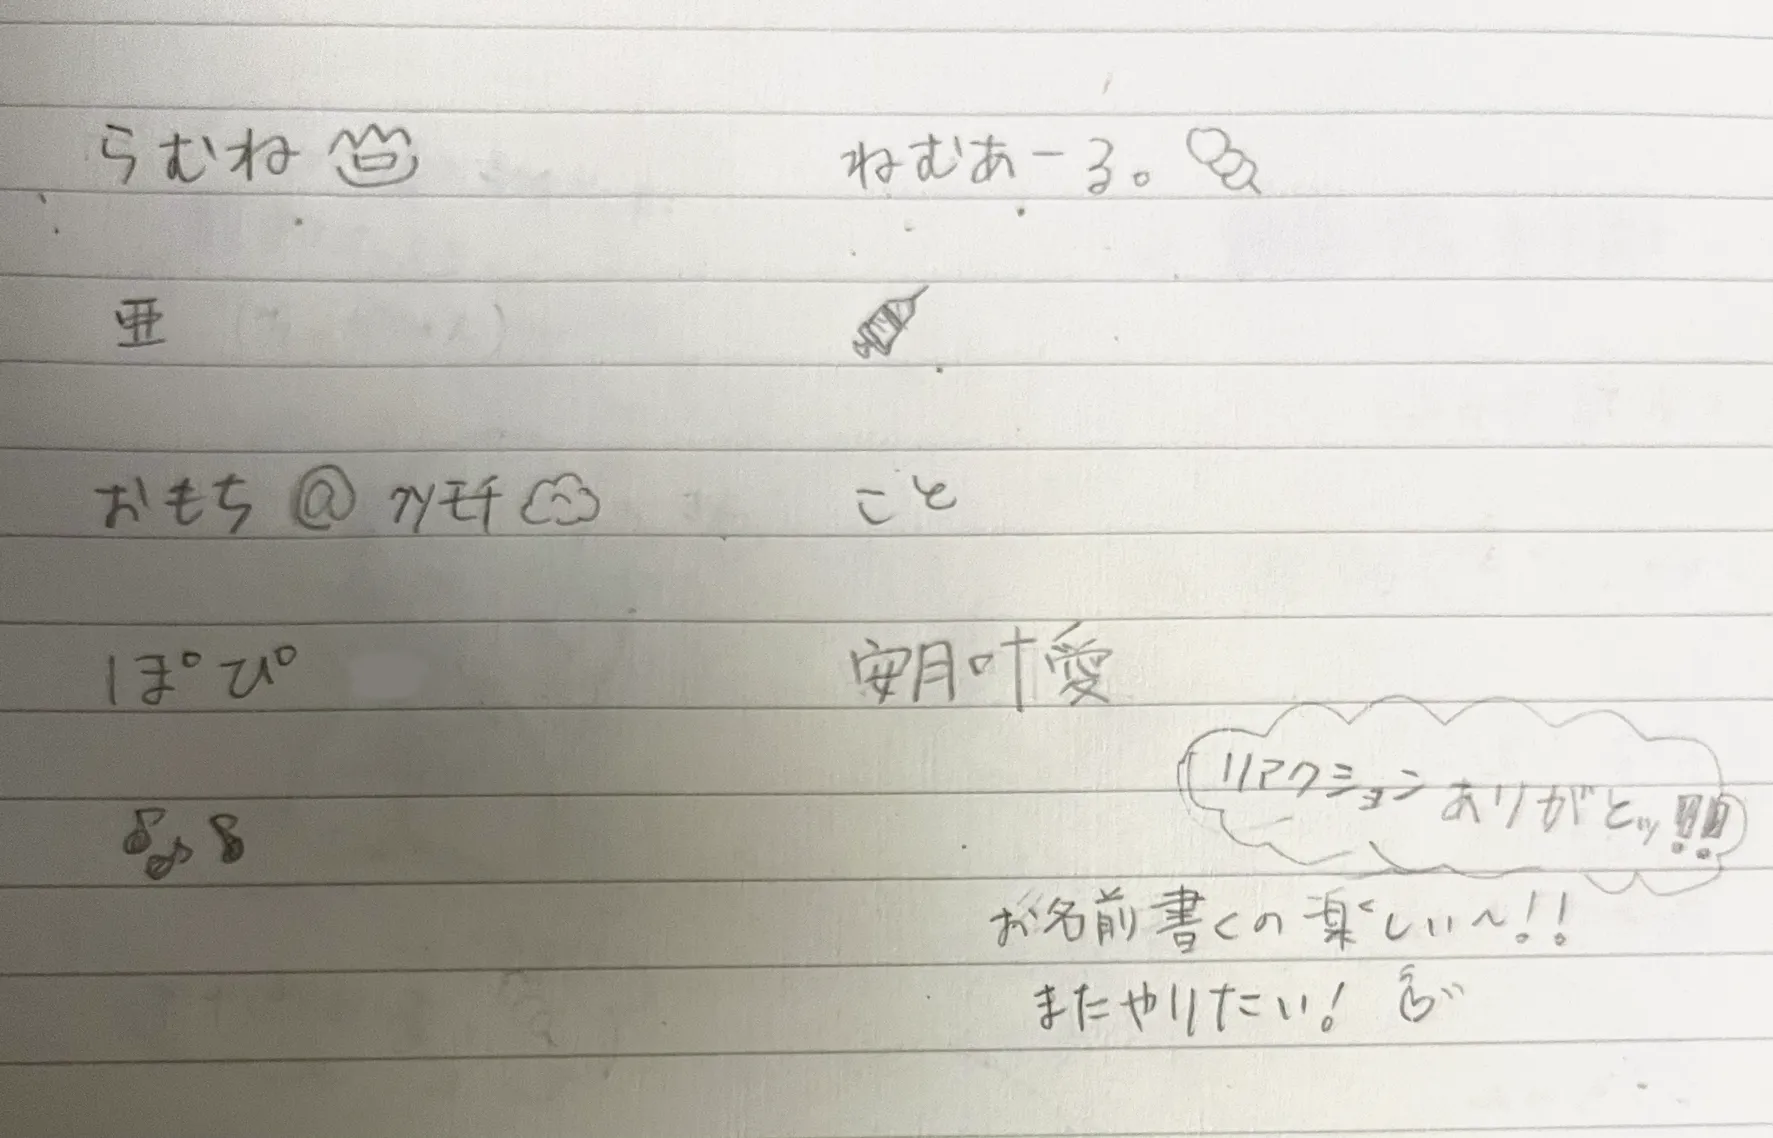 らむね
ねむあーる。
亜
おもち@クソモチ
こと
ぽぴ
安月叶愛
リアクション ありがとッ!!
お名前書くの楽しい〜!!
またやりたい!